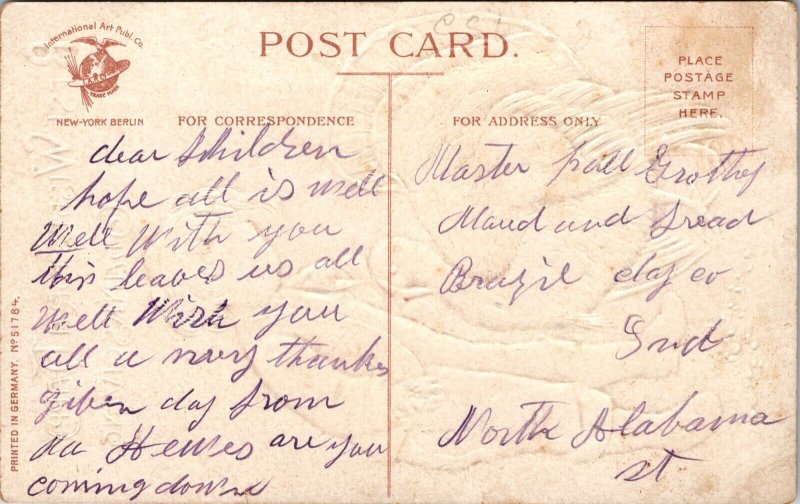 International Art Publ. Co.
TRADE MARK
NEW-YORK BERLIN
POST CARD.
PLACE
POSTAGE
STAMP
HERE.
FOR CORRESPONDENCE
FOR ADDRESS ONLY
dear Children
hope all is well
Well With you
this leaves us all
well Wish you
all a mery thanks
given day from
are you
coming down
Master
Maud and
Brazil clay co
Ind
North Alabama
st
PRINTED IN GERMANY. No 51784.